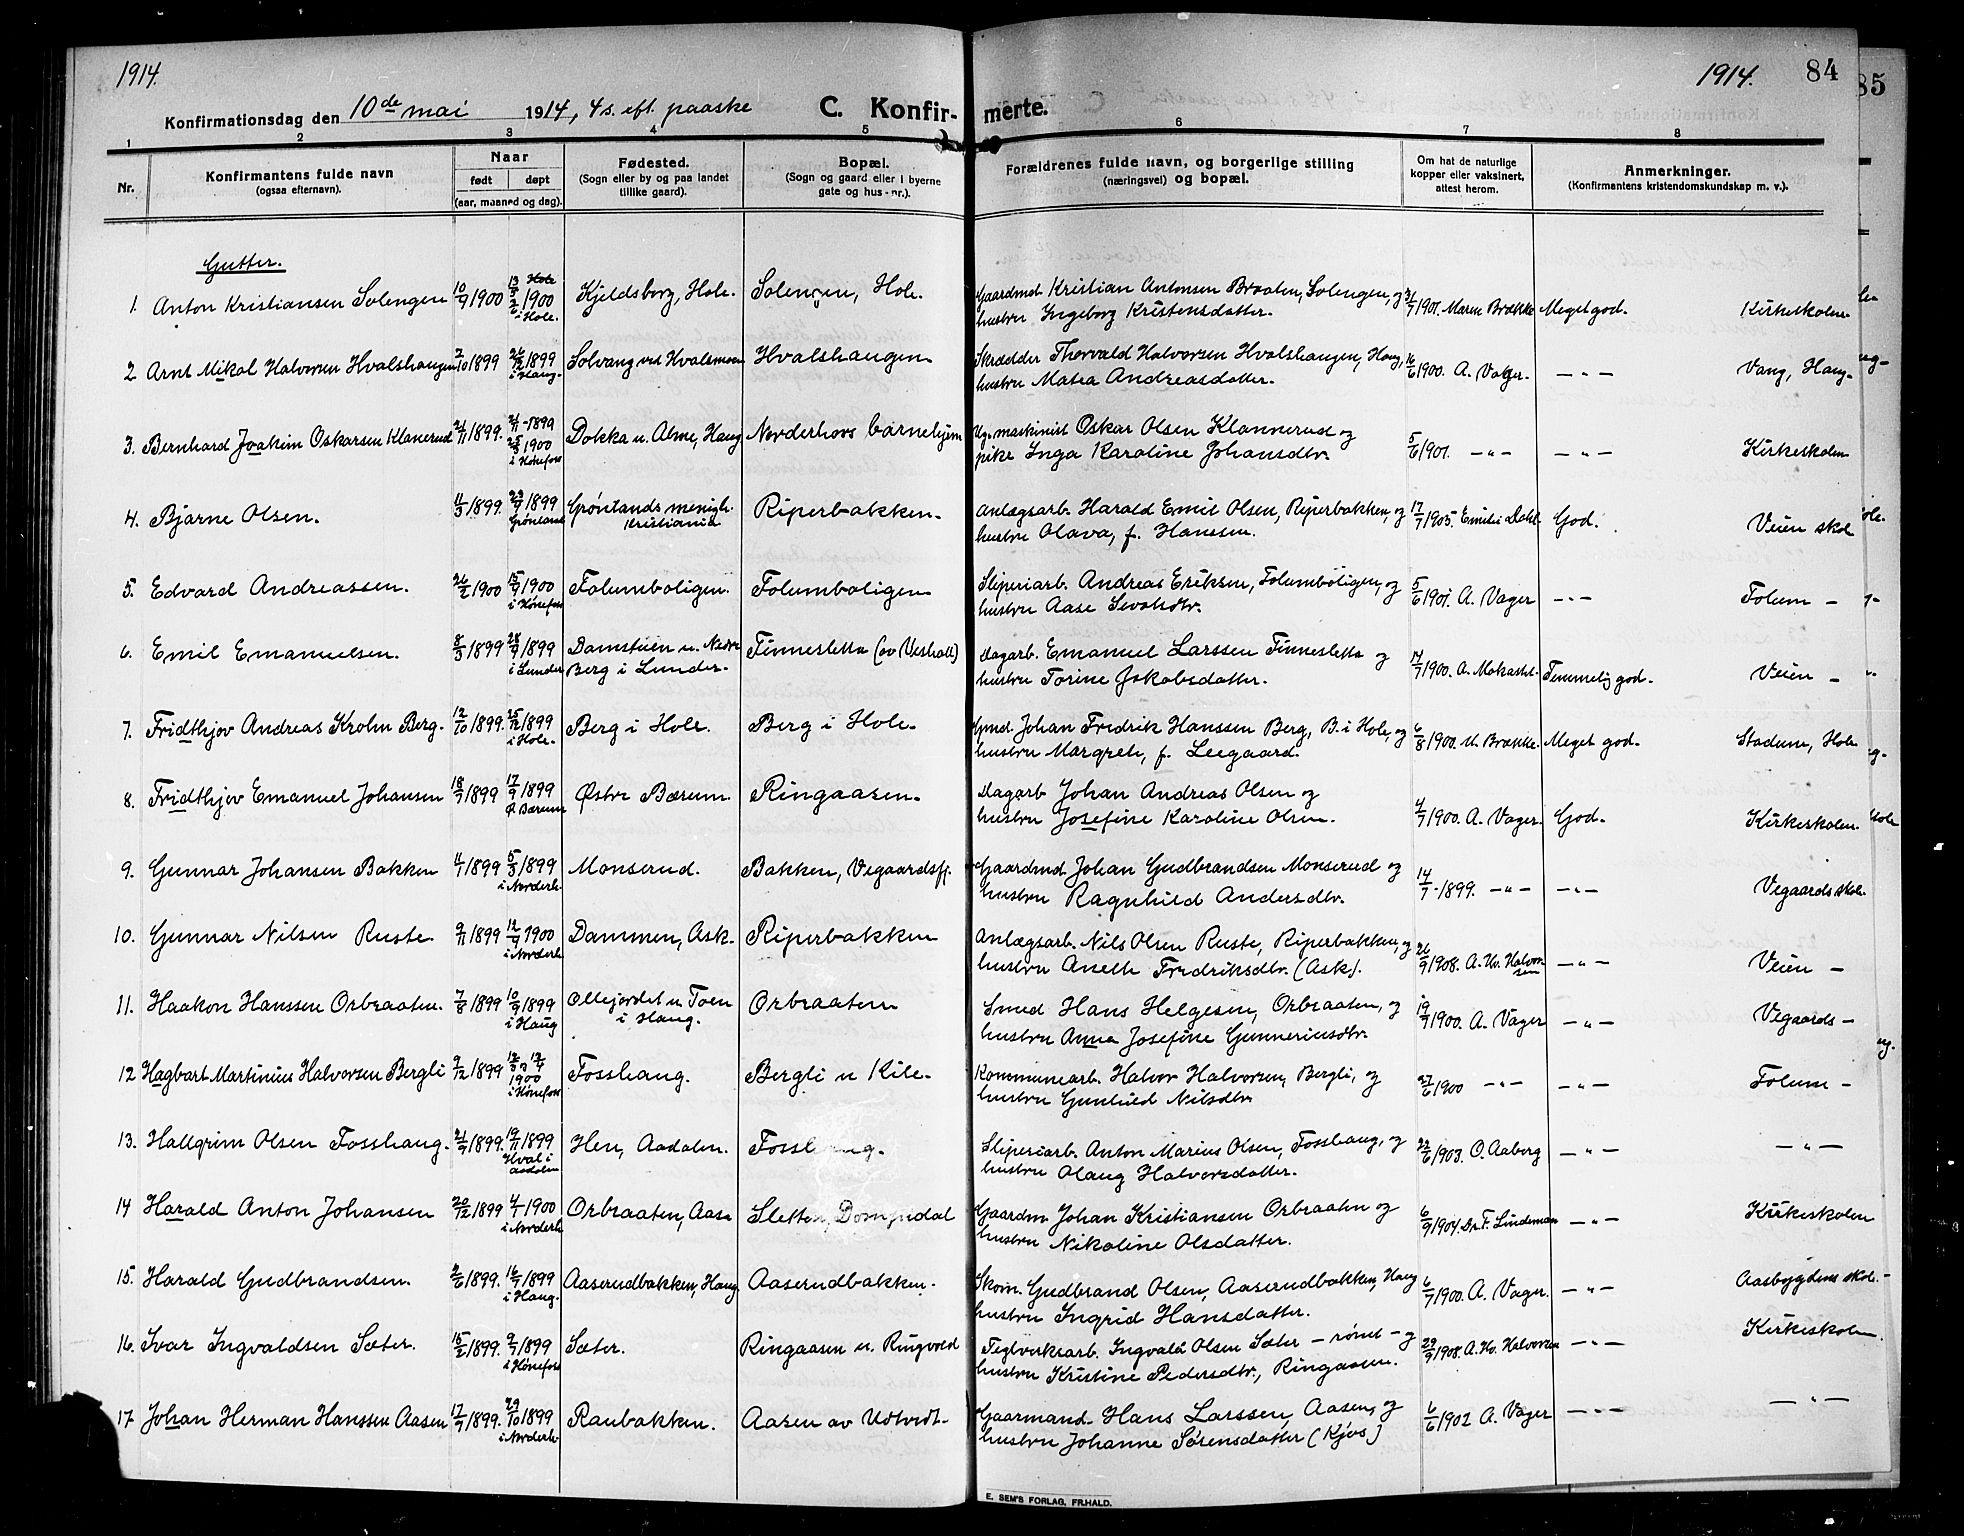 1914.
1914. 84
85
Konfirmationsdag den 10de mai 1914, 4 s. eft. paaske C. Konfirmerte.
1 2 3 4 5 6 7 8
Nr. Konfirmantens fulde navn (ogsaa efternavn). Naar født døpt (aar, maaned og dag). Fødested. (Sogn eller by og paa landet tillike gaard). Bopæl. (Sogn og gaard eller i byerne gate og hus-nr.). Forældrenes fulde navn, og borgerlige stilling (næringsvei) og bopæl. Om hat de naturlige kopper eller vaksinert, attest herom. Anmerkninger. (Konfirmantens kristendomskundskap m. v.).
Gutter.
1. Anton Kristiansen Solengen 10/9 1900 1900 i Hole. Kjeldsborg, Hole. Solengen, Hole. Gaardmd Kristian Antonsen Braaten, Solengen, og
hustru Ingeborg Kristensdatter. 1901. Maren Brække Meget god. Kirkeskolen
2 Arnt Mikal Halvorsen Hvalshaugen 1899 26/12 1899 i Haug. Solvang ved Hvalsmoen Hvalshaugen Skrædder Thorvald Halvorsen Hvalshaugen, Haug,
hustru Matea Andreasdatter. 16/6 1900. A. Vager. —"— Vang, Haug-
3. Bernhard Joakim Oskarsen Klanerud 21/11 1899. 1900 i Hønefoss Dokka u. Alme, Haug Norderhovs barnehjem Ug. maskinist Oskar Olsen Klannerud og
pike Inga Karoline Johansdtr. 5/6 1901. —"— —"— Kirkeskolen
4. Bjarne Olsen. 11/3 1899. 23/9 1899 Grønland Grønlands menigh. Kristiania Riperbakken. Anlægsarb. Harald Emil Olsen, Riperbakken, og
hustru Olava, f. Hanssen. 17/7 1905. Emilie Dahl God. Veien skol
5. Edvard Andreassen. 26/2 1900 15/9 1900 i Hønefoss Folumboligen. Folumboligen Sliperiarb. Andreas Eriksen, Folumboligen, og
hustru Aase 5/6 1901. A. Vager —"— Folum —
6. Emil Emanuelsen. 8/3 1899 28/9 1899 i Lunder Damstuen u. Nedre Berg i Lunder. Finnesletta (av Veshall) Dagarb. Emanuel Larssen Finnesletta og
hustru Torine Jakobsdatter. 14/7 1900. A. Temmelig god. Veien —
7. Fridthjov Andreas Krohn Berg. 12/10 1899. 25/12 1899 i Hole. Berg i Hole. Berg i Hole. Gmd. Johan Fredrik Hanssen Berg, B. i Hole, og
hustru Margrete, f. Leegaard. 6/8 1900. M. Brække. Meget god. Stadum, Hole
8. Fridthjov Emanuel Johansen 18/7 1899 17/9 1899 Ø. Bærum Østre Bærum. Ringaasen. Dagarb Johan Andreas Olsen og
hustru Josefine Karoline Olsen. 4/7 1900. A. Vager. God. Kirkeskolen.
9. Gunnar Johansen Bakken 1899 5/3 1899 i Norderh. Monserud. Bakken, Vegaardsfj. Gaardmd. Johan Gudbrandsen Monserud og
hustru Ragnhild Andersdtr. 14/7 1899. —"— —"— Vegaards skole
10. Gunnar Nilsen Ruste 9/11 1899 1900 i Norderh. Dammen, Ask. Riperbakken Anlægsarb. Nils Olsen Ruste, Riperbakken, og
hustru Aneth Fredriksdtr. (Ask). 26/9 1908. A. Hv. Halvorsen —"— Veien —
11. Haakon Hanssen Orbraaten. 7/8 1899 10/9 1899 i Haug Ollejordet u. Toen i Haug. Orbraaten Smed Hans Helgesen, Orbraaten, og
hustru Anna Josefine Gunneriusdtr. 19/7 1900. A. Vager —"— Vegaards —
12 Hagbart Martinius Halvorsen Bergli 1899 1900 i Hønefoss Fosshaug. Bergli u Kile. Kommunearb. Halvor Halvorsen, Bergli, og
hustru Gunhild Nilsdtr 27/6 1900 —"— —"— Folum —
13. Hallgrim Olsen Fosshaug. 21/9 1899. 19/11 1899 Hval i Aadalen Hen, Aadalen. Fosshaug. Sliperiarb. Anton Marius Olsen, Fosshaug, og
hustru Olaug Halvorsdatter. 22/6 1903. O. Aaberg —"— —"—
14 Harald Anton Johansen 20/12 1899 4/1 1900 i Norderh. Orbraaten, Aasa Sletten, Gaardm. Johan Kristiansen Orbraaten og
hustru Nikoline Olsdatter. 6/9 1904. Dr. F. Lindeman —"— Kirkeskolen
15. Harald Gudbrandsen. 2/6 1899. 16/7 1899 i Haug. Aaserudbakken, Haug Aaserudbakken. Skom. Gudbrand Olsen, Aaserudbakken, Haug
hustru Ingrid Hansdatter. 6/7 1900. A. Vager. —"— Aasbygdens skole.
16. Ivar Ingvaldsen Sæter. 15/2 1899. 9/7 1899 i Hønefoss Sæter. Ringaasen u. Ringvold Teglverksarb. Ingvald Olsen Sæter — og
hustru Kristine Pedersdtr., Ringaasen. 22/9 1908. A. Hv. Halvorsen —"— Kirkeskolen.
17. Johan Herman Hanssen Aasen 17/9 1899. 29/10 1899 i Norderh Raubakken. Aasen av Gaarmand Hans Larssen, Aasen, og
hustru Johanne Sørensdatter (Kjøs) 6/6 1902 A. Vager —"— —"—
E. SEM'S FORLAG, FR.HALD.